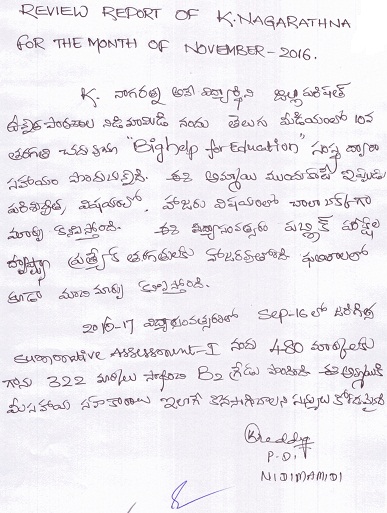 REVIEW REPORT OF K.NAGARATHNA
FOR THE MONTH OF NOVEMBER-2016.
K. నాగరత్న అనే విద్యార్థిని జిల్లా పరిషత్
ఉన్నత పాఠశాల నిడిమామిడి నందు తెలుగు మీడియంలో 10వ
తరగతి చదువుతూ "Bighelp for Education" సంస్థ ద్వారా
సహాయం పొందుచున్నది. ఈ అమ్మాయి ముందుకంటే ఇప్పుడు
పరిశుభ్రత విషయంలో, హాజరు విషయంలో చాలా
మార్పు కనిపిస్తోంది. ఈ విద్యాసంవత్సరం పబ్లిక్ పరీక్షల
దృష్ట్యా ప్రత్యేక తరగతులకు హాజరవుతోంది ఫలితాలలో
కూడా మార్పు కనిపిస్తోంది.
2016-17 విద్యాసంవత్సరంలో Sep-16లో జరిగిన
Summative Assessment-I నందు 480 మార్కులకు
గాను 322 మార్కులు సాధించి B2 గ్రేడు పొందింది ఈ అమ్మాయికి
మీ సహాయ సహకారాలు ఇలాగే కొనసాగించాలని
P.D,
NIDIMAMIDI